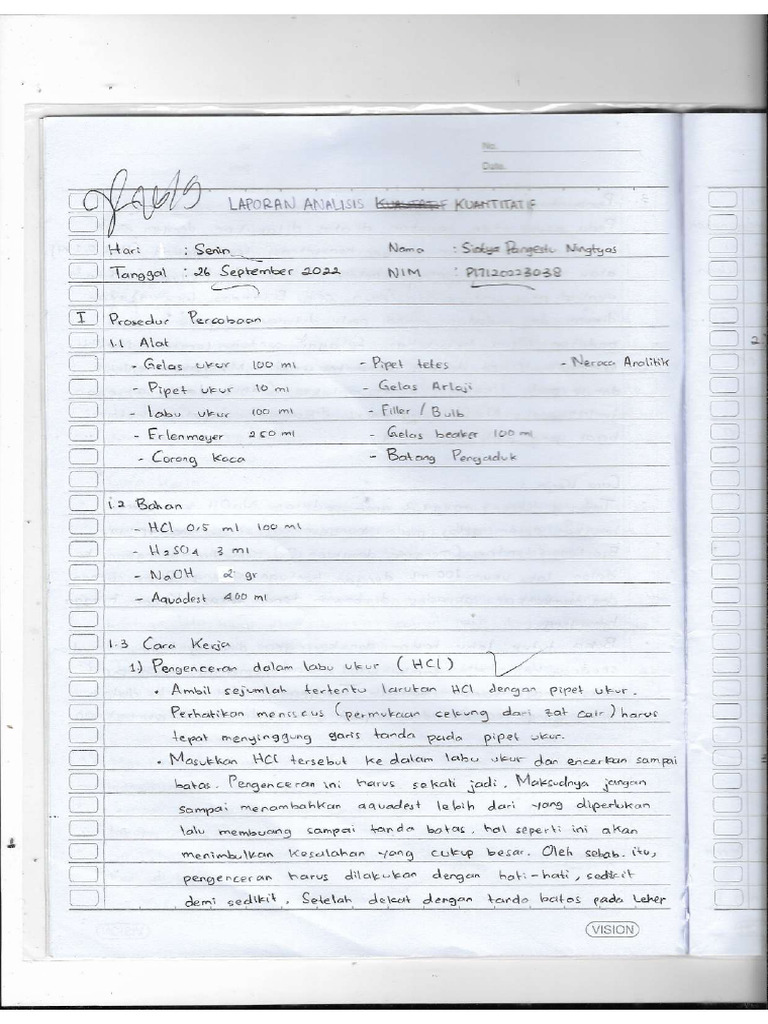 No.
Date.
LAPORAN ANALISIS KUALITATIF KUANTITATIF
Hari : Senin
Nama : Pangestu Ningtyas
Tanggal : 26 September 2022
NIM : P17120023038
I Prosedur Percobaan
1.1 Alat
- Gelas ukur 100 ml - Pipet tetes - Neraca Analitik
- Pipet ukur 10 ml - Gelas Arloji
- labu ukur 100 ml - Filler / Bulb
- Erlenmeyer 250 ml - Gelas beaker 100 ml
- Corong Kaca - Batang Pengaduk
1.2 Bahan
- HCl 0,5 ml 100 ml
- H2SO4 3 ml
- NaOH 2 gr
- Aquadest 400 ml
1.3 Cara Kerja
1.) Pengenceran dalam labu ukur ( HCl )
• Ambil sejumlah tertentu larutan HCl dengan pipet ukur.
Perhatikan meniscus (permukaan cekung dari zat cair) harus
tepat menyinggung garis tanda pada pipet ukur.
• Masukkan HCl tersebut ke dalam labu ukur dan encerkan sampai
batas. Pengenceran ini harus sekali jadi. Maksudnya jangan
sampai menambahkan aquadest lebih dari yang diperlukan
lalu membuang sampai tanda batas, hal seperti ini akan
menimbulkan kesalahan yang cukup besar. Oleh sebab. itu,
pengenceran harus dilakukan dengan hati-hati, sedikit
demi sedikit. Setelah dekat dengan tanda batas pada leher
VISION